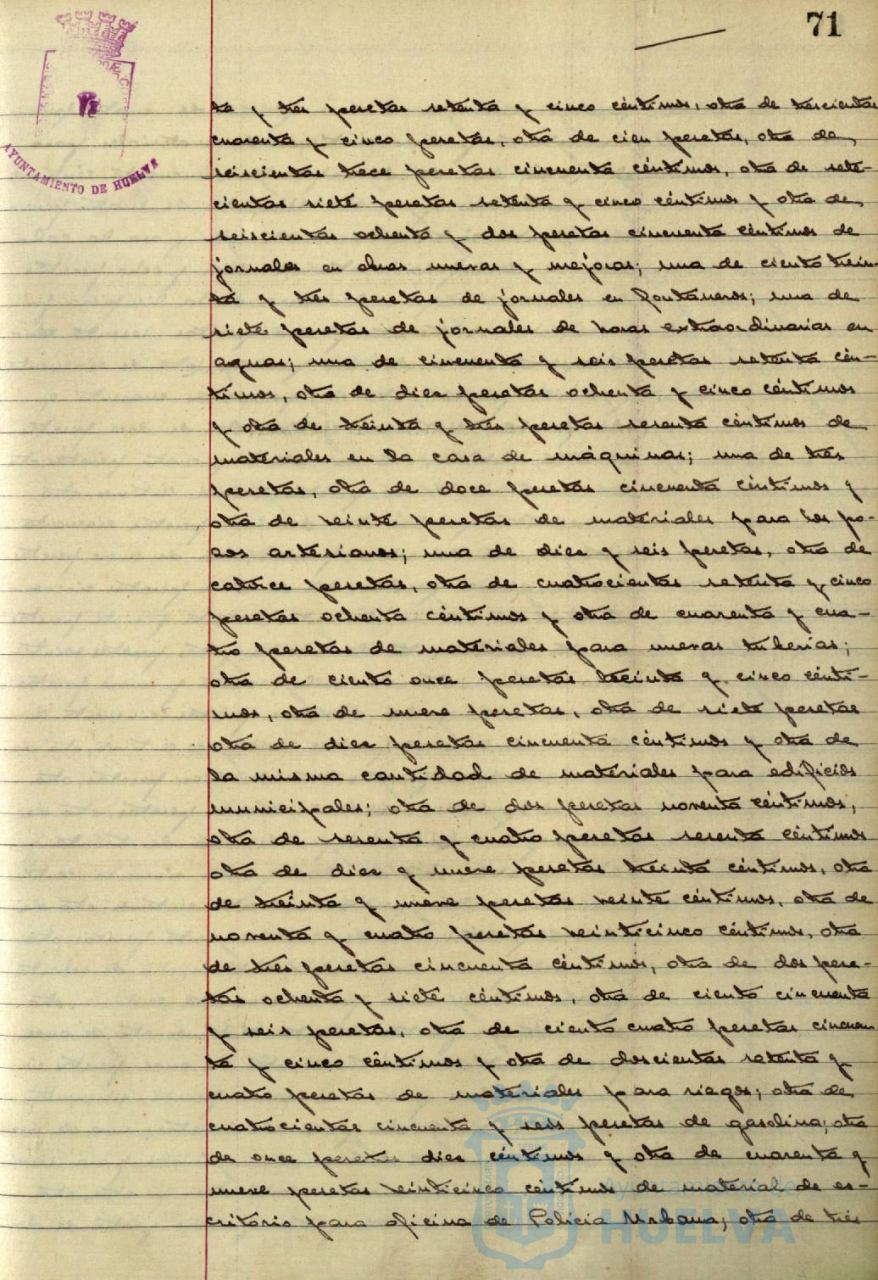 71
AYUNTAMIENTO DE HUELVA
ta y tres pesetas setenta y cinco céntimos, otra de trescientas
cuarenta y cinco pesetas, otra de cien pesetas, otra de
seiscientas trece pesetas cincuenta céntimos, otra de sete-
cientas siete pesetas setenta y cinco céntimos y otra de
seiscientas ochenta y dos pesetas cincuenta céntimos de
jornales en obras nuevas y mejoras; una de ciento trein-
ta y tres pesetas de jornales en fontaneros; una de
siete pesetas de jornales de horas extraordinarias en
aguas; una de cincuenta y seis pesetas setenta cén-
timos, otra de diez pesetas ochenta y cinco céntimos
y otra de treinta y tres pesetas sesenta céntimos de
materiales en la casa de máquinas; una de tres
pesetas, otra de doce pesetas cincuenta céntimos y
otra de veinte pesetas de materiales para los po-
zos artesianos; una de diez y seis pesetas, otra de
catorce pesetas, otra de cuatrocientas setenta y cinco
pesetas ochenta céntimos y otra de cuarenta y cua-
tro pesetas de materiales para nuevas tuberías;
otra de ciento once pesetas treinta y cinco cénti-
mos, otra de nueve pesetas, otra de siete pesetas
otra de diez pesetas cincuenta céntimos y otra de
la misma cantidad de materiales para edificios
municipales; otra de dos pesetas noventa céntimos,
otra de sesenta y cuatro pesetas sesenta céntimos
otra de diez y nueve pesetas treinta céntimos, otra
de treinta y nueve pesetas veinte céntimos, otra de
noventa y cuatro pesetas veinticinco céntimos, otra
de tres pesetas cincuenta céntimos, otra de dos pese-
tas ochenta y siete céntimos, otra de ciento cincuenta
y seis pesetas, otra de ciento cuatro pesetas cincuen
ta y cinco céntimos y otra de doscientas setenta y
cuatro pesetas de materiales para riegos; otra de
cuatrocientas cincuenta y seis pesetas de gasolina; otra
de once pesetas diez céntimos y otra de cuarenta y
nueve pesetas veinticinco céntimos de material de es-
critorio para oficina de Policía Urbana; otra de tres
HUELVA